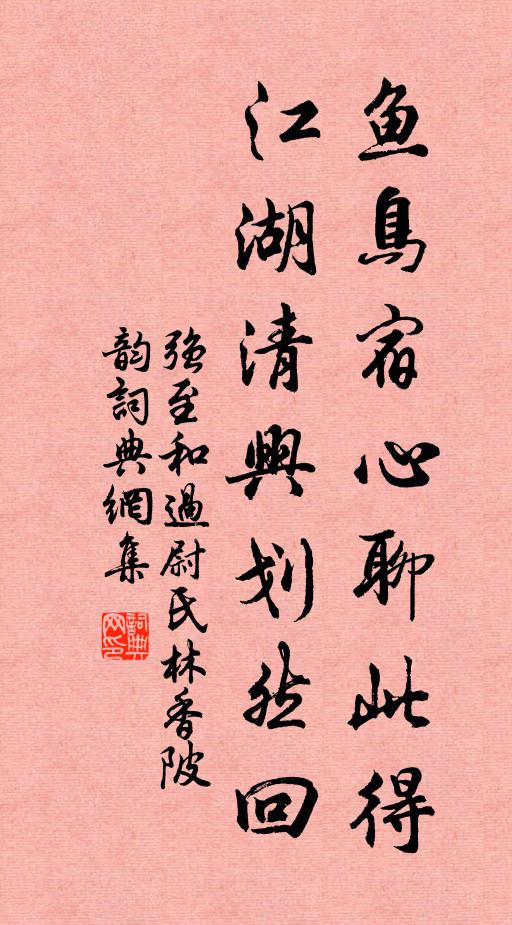 鱼鳥宿心聊此得
江湖清興划然回
强至和過尉氏林香陂
韵詞典網集
詞典网印